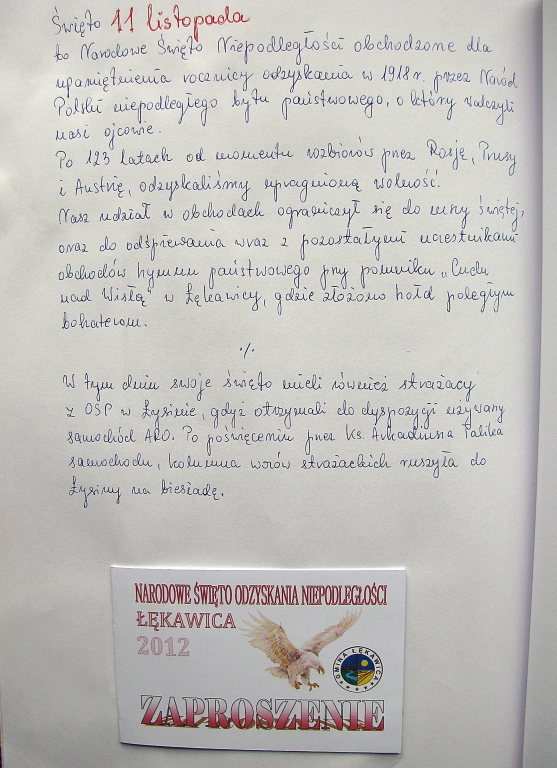 Święto 11 listopada
to Narodowe Święto Niepodległości obchodzone dla
upamiętnienia rocznicy odzyskania w 1918 r. przez Naród
Polski niepodległego bytu państwowego, o który walczyli
nasi ojcowie.
Po 123 latach od momentu rozbiorów przez Rosję, Prusy
i Austrię, odzyskaliśmy upragnioną wolność.
Nasz udział w obchodach ograniczył się do mszy świętej,
oraz do odśpiewania wraz z pozostałymi uczestnikami
obchodów hymnu państwowego przy pomniku „Cudu
nad Wisłą" w Łękawicy, gdzie złożono hołd poległym
bohaterom.
./.
W tym dniu swoje święto mieli również strażacy
z OSP w Łysinie, gdyż otrzymali do dyspozycji używany
samochód ARO. Po poświęceniu przez ks. Arkadiusza Talika
samochodu, kolumna wozów strażackich ruszyła do
Łysiny na biesiadę.
NARODOWE ŚWIĘTO ODZYSKANIA NIEPODLEGŁOŚCI
ŁĘKAWICA
2012
GMINA ŁĘKAWICA
ZAPROSZENIE